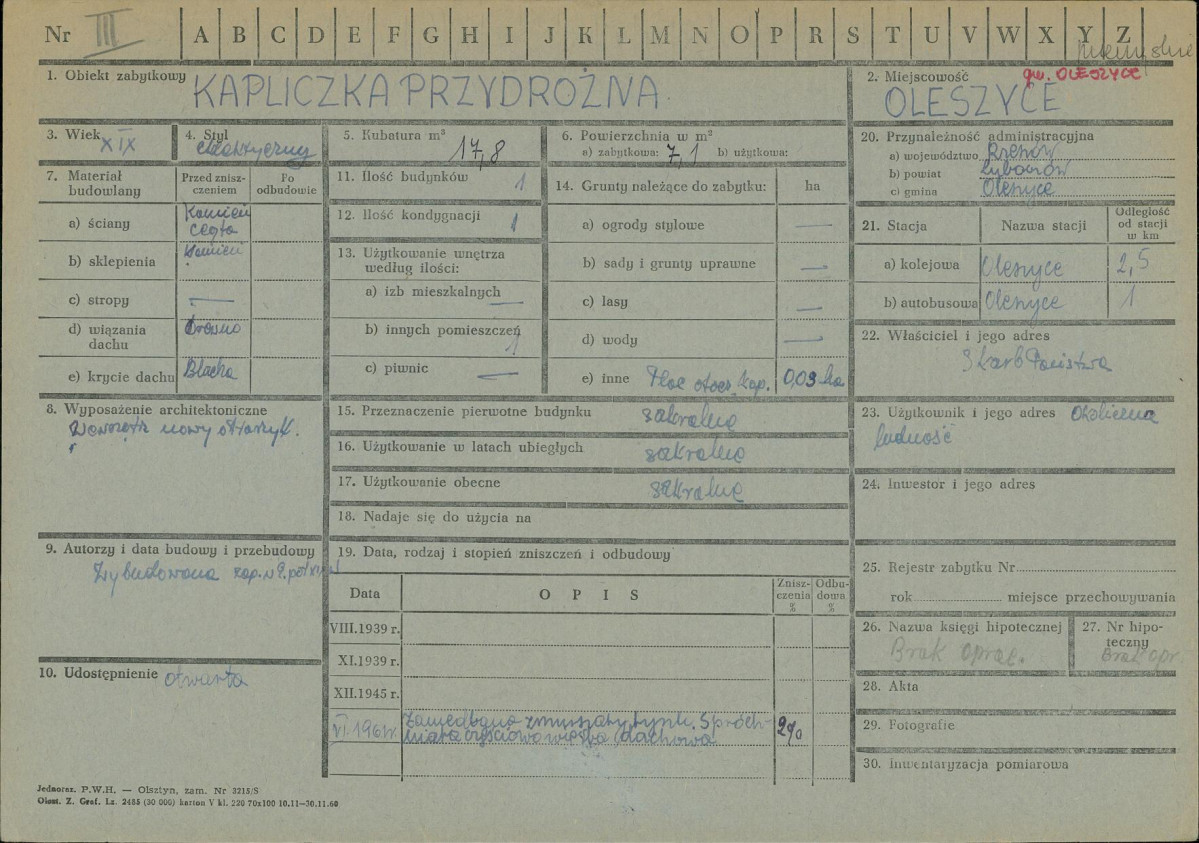 Nr III A B C D E F G H I J K L M N O P R S T U V W X Y Z
1. Obiekt zabytkowy KAPLICZKA PRZYDROŻNA
2. Miejscowość gm. OLESZYCE
OLESZYCE
3. Wiek XIX
4. Styl eklektyczny
5. Kubatura m³ 17,8
6. Powierzchnia w m²
a) zabytkowa: 7,1 b) użytkowa:
7. Materiał budowlany
Przed zniszczeniem
Po odbudowie
a) ściany Kamień cegła
b) sklepienia Kamień
c) stropy —
d) wiązania dachu Drewno
e) krycie dachu Blacha
8. Wyposażenie architektoniczne
Wewnątrz nowy ołtarzyk.
9. Autorzy i data budowy i przebudowy
Wybudowana
10. Udostępnienie otwarta
11. Ilość budynków 1
12. Ilość kondygnacji 1
13. Użytkowanie wnętrza według ilości:
a) izb mieszkalnych —
b) innych pomieszczeń 1
c) piwnic —
14. Grunty należące do zabytku: ha
a) ogrody stylowe —
b) sady i grunty uprawne —
c) lasy —
d) wody —
e) inne Plac otocz. kap. 0,03 ha
15. Przeznaczenie pierwotne budynku sakralne
16. Użytkowanie w latach ubiegłych sakralne
17. Użytkowanie obecne sakralne
18. Nadaje się do użycia na
19. Data, rodzaj i stopień zniszczeń i odbudowy
Data OPIS Zniszczenia % Odbudowa %
VIII.1939 r.
XI.1939 r.
XII.1945 r.
VI.1961r. Zaniedbana zmurszały tynk. Spróchniała częściowo więźba dachowa 2%
20. Przynależność administracyjna
a) województwo Rzeszów
b) powiat Lubaczów
c) gmina Oleszyce
21. Stacja Nazwa stacji Odległość od stacji w km
a) kolejowa Oleszyce 2,5
b) autobusowa Oleszyce 1
22. Właściciel i jego adres
Skarb Państwa
23. Użytkownik i jego adres Okoliczna
ludność
24. Inwestor i jego adres
25. Rejestr zabytku Nr
rok miejsce przechowywania
26. Nazwa księgi hipotecznej
Brak oprac.
27. Nr hipoteczny
Brak opr.
28. Akta
29. Fotografie
30. Inwentaryzacja pomiarowa
Jednoraz. P.W.H. — Olsztyn, zam. Nr 3215/S
Olszt. Z. Graf. Lz. 2485 (30 000) karton V kl. 220 70x100 10.11—30.11.60